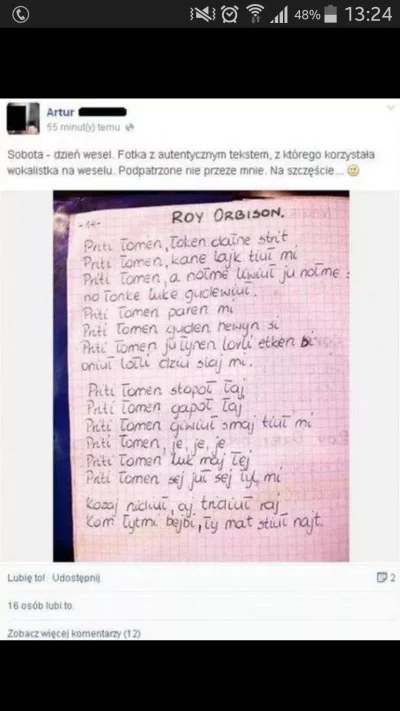 48% 13:24
Artur
55 minut(y) temu
Sobota - dzień wesel. Fotka z autentycznym tekstem, z którego korzystała
wokalistka na weselu. Podpatrzone nie przeze mnie. Na szczęście...
-14-
ROY ORBISON.
Priti Łomen, Łoken daŁne strit
Priti Łomen, kane lajk tiuŁ mi
Priti Łomen, a noŁme liwiuŁ ju noŁme
no Łonke luke gudewiuŁ.
Priti Łomen paren mi
Priti Łomen guden hewyn si
Priti Łomen ju Łynen lovli etken bi
oniuŁ loŁli dziu slaj mi.
Priti Łomen stopoŁ Łaj
Priti Łomen gapoŁ Łaj
Priti Łomen giwiuŁ smaj tiuŁ mi
Priti Łomen, je, je, je
Priti Łomen luk maj Łej
Priti Łomen sej juŁ sej Łyt mi
Kozaj nidiuŁ, aj tridiuŁ raj
Kom Łytmi bejbi, Ły mat stiuŁ najt.
Lubię to! · Udostępnij
2
16 osób lubi to.
Zobacz więcej komentarzy (12)